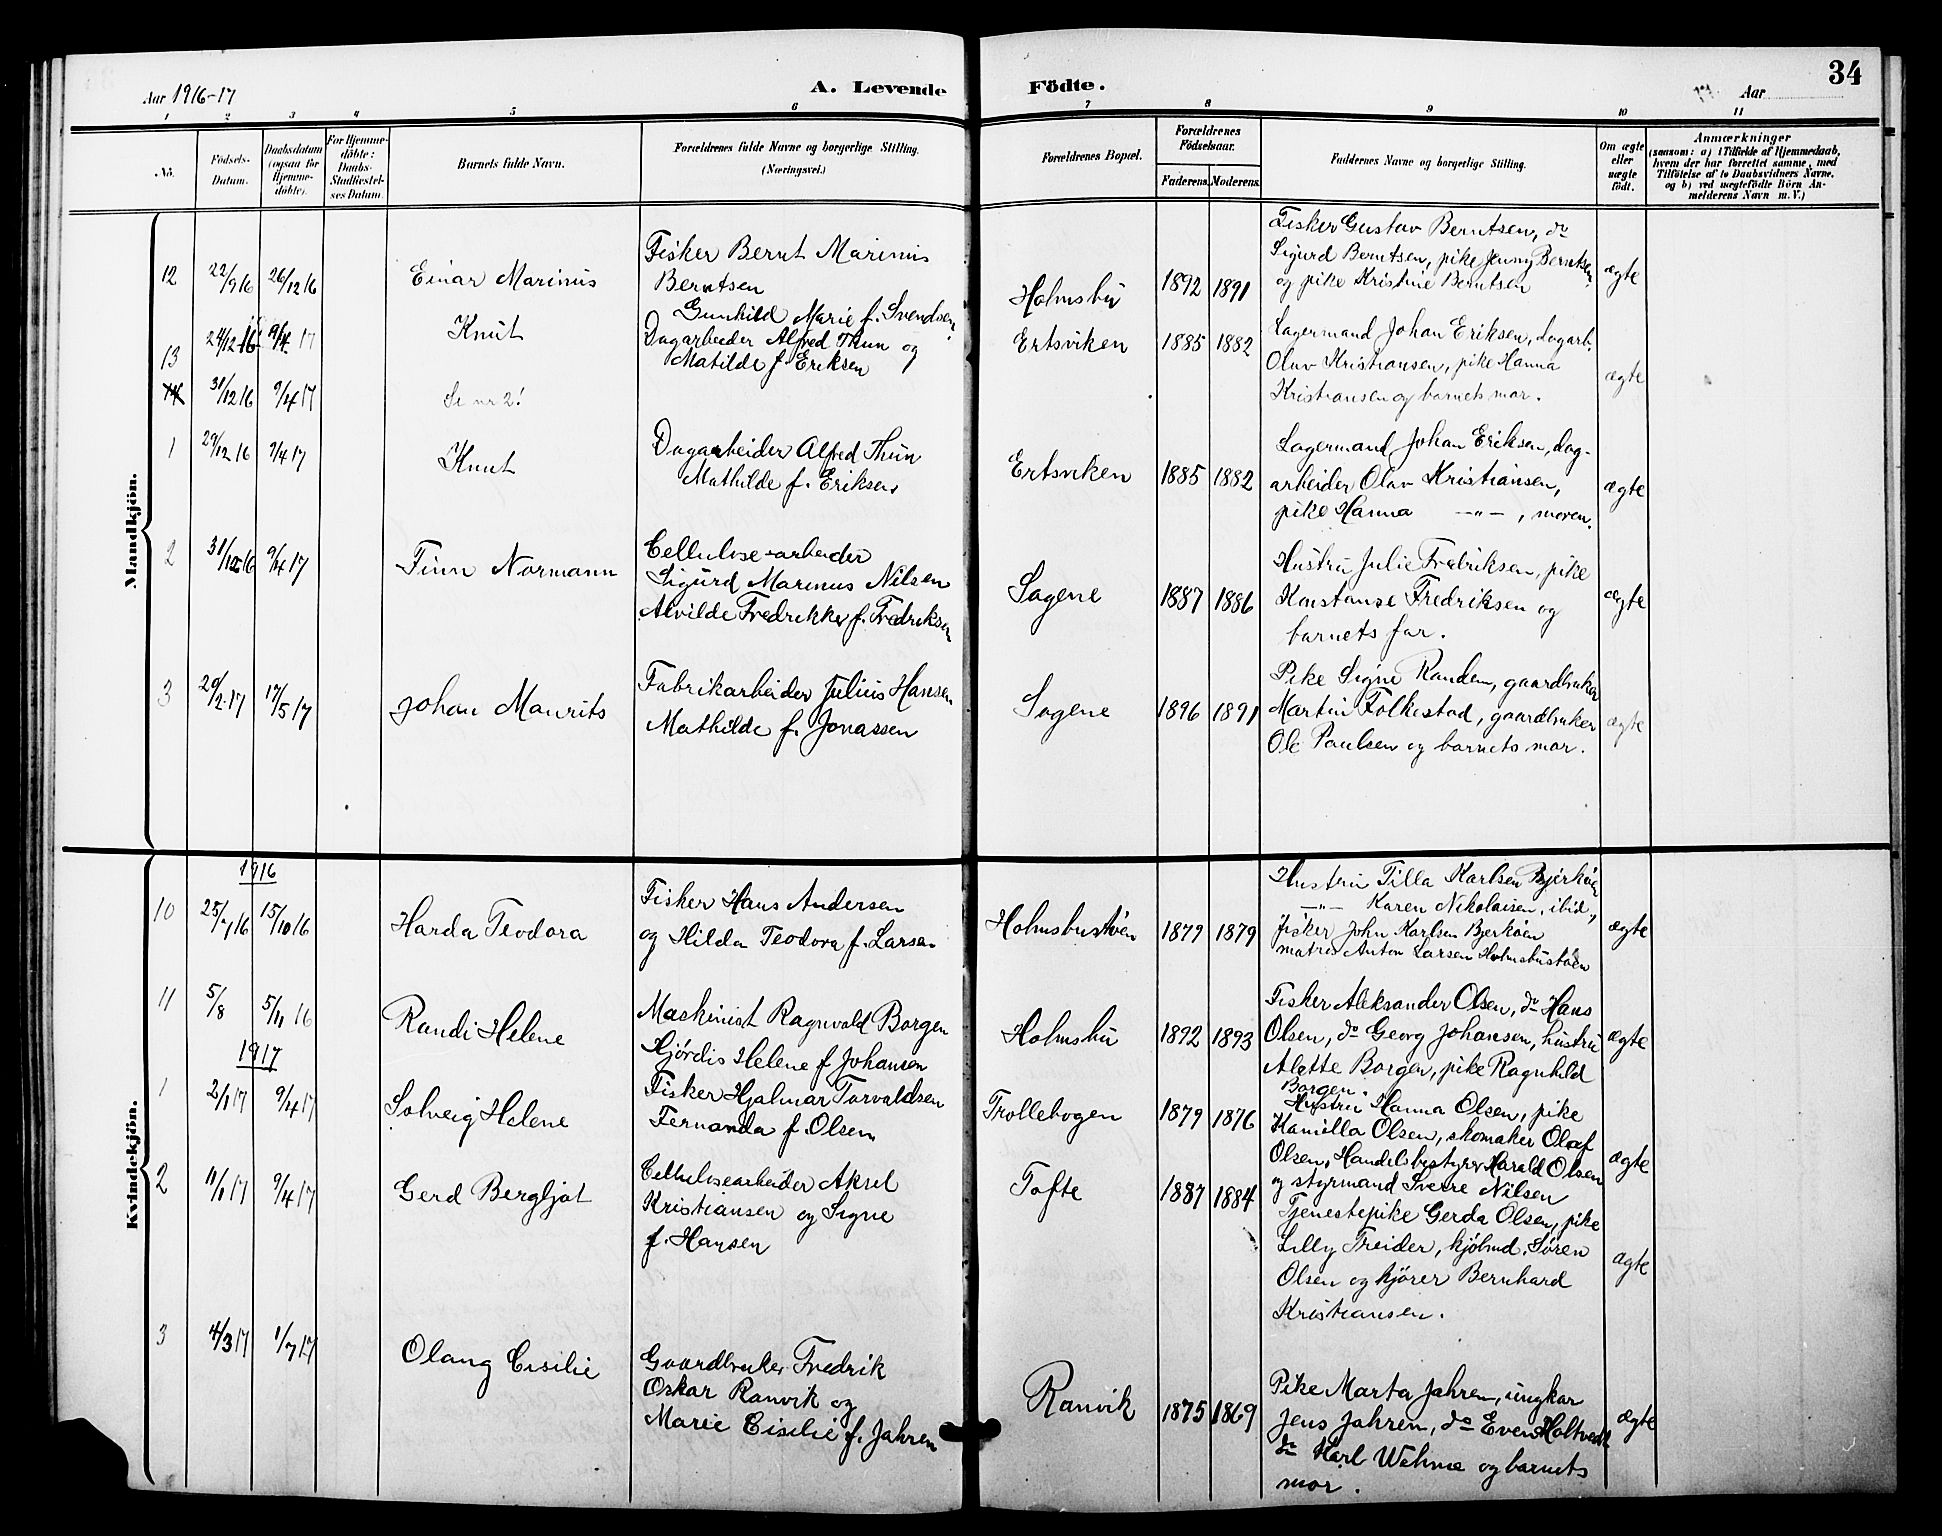 Aar 1916-17
A. Levende
Födte.
Aar
34
1 2 3 4 5 6 7 8 9 10 11
No.
Födsels-
Datum.
Daabsdatum
(ogsaa for
Hjemme-
döbte).
For Hjemme-
döbte:
Daabs-
Stadfæstel-
ses Datum
Barnets fulde Navn.
Forældrenes fulde Navne og borgerlige Stilling.
(Næringsvei.)
Forældrenes Bopæl.
Forældrenes
Födselsaar.
Faderens. Moderens.
Faddernes Navne og borgerlige Stilling.
Om ægte
eller
uægte
födt.
Anmærkninger
(saasom: a) i Tilfælde af Hjemmedaab,
hvem der har forrettet samme, med
Tilföielse af to Daabsvidners Navne.
og b) ved uægtefödte Börn An-
melderens Navn m. V.)
Mandkjön.
12 22/9 16 26/12 16 Einar Marinus
Fisker Bernt Marinus
Berntsen
Gunhild Marie f. Svendsen
Holmsbu 1892 1891
Fisker Gustav Berntsen, do
Sigurd Berntsen, pike Jenny Berntsen
og pike Kristine Berntsen
ægte
13 24/12 16 9/4 17 Knut
Dagarbeider Alfred Thun og
Matilde f. Eriksen
Ertsviken 1885 1882
Lagermand Johan Eriksen, dagarb.
Olav Kristiansen, pike Hanna
Kristiansen og barnets mor.
ægte
14 31/12 16 9/4 17 Se nr 2!
1 29/12 16 9/4 17 Knut
Dagarbeider Alfred Thun
Mathilde f. Eriksen
Ertsviken 1885 1882
Lagermand Johan Eriksen, dag-
arbeider Olav Kristiansen,
pike Hanna —"— , moren.
ægte
2 31/12 16 9/4 17 Finn Normann
Cellulose-arbeider
Sigurd Marinus Nilsen
Alvilde Fredrikke f. Fredriksen
Sagene 1887 1886
Hustru Julie Fredriksen, pike
Konstanse Fredriksen og
barnets far.
ægte
3 20/2 17 17/5 17 Johan Maurits
Fabrikarbeider Julius Hansen
Mathilde f. Jonassen
Sagene 1896 1891
Pike Signe Randem, gaardbruker
Martin Folkestad, gaardbruker
Ole Paulsen og barnets mor.
ægte
Kvindekjön.
1916
10 25/7 16 15/10 16 Harda Teodora
Fisker Hans Andersen
og Hilda Teodora f. Larsen
Holmsbustøen 1879 1879
Hustru Tilla Karlsen Bjerkøen
—"— Karen Nikolaisen, ibid.,
fisker John Karlsen Bjerkøen
matros Anton Larsen Holmsbustøen
ægte
11 5/8 5/11 16 Randi Helene
Maskinist Ragnvald Borgen
Hjørdis Helene f. Johansen
Holmsbu 1892 1893
Fisker Aleksander Olsen, do Hans
Olsen, do Georg Johansen, hustru
Alette Borgen, pike Ragnhild
Borgen.
ægte
1917
1 2/1 17 9/4 17 Solveig Helene
Fisker Hjalmar Torvaldsen
Fernanda f. Olsen
Trollebogen 1879 1876
Hustru Hanna Olsen, pike
Kamilla Olsen, skomaker Olaf
Olsen, Handelsbestyrer Harald Olsen
og styrmand Sverre Nilsen
ægte
2 11/1 17 9/4 17 Gerd Bergljot
Cellulosearbeider Aksel
Kristiansen og Signe
f. Hansen
Tofte 1887 1884
Tjenestepike Gerda Olsen, pike
Lilly Treider, kjøbmd. Søren
Olsen og kjører Bernhard
Kristiansen.
ægte
3 4/3 17 1/7 17 Olaug Cisilie
Gaardbruker Fredrik
Oskar Ranvik og
Marie Cisilie f. Jahren
Ranvik 1875 1869
Pike Marta Jahren, ungkar
Jens Jahren, do Even Holtvedt
do Karl Wehme og barnets
mor.
ægte